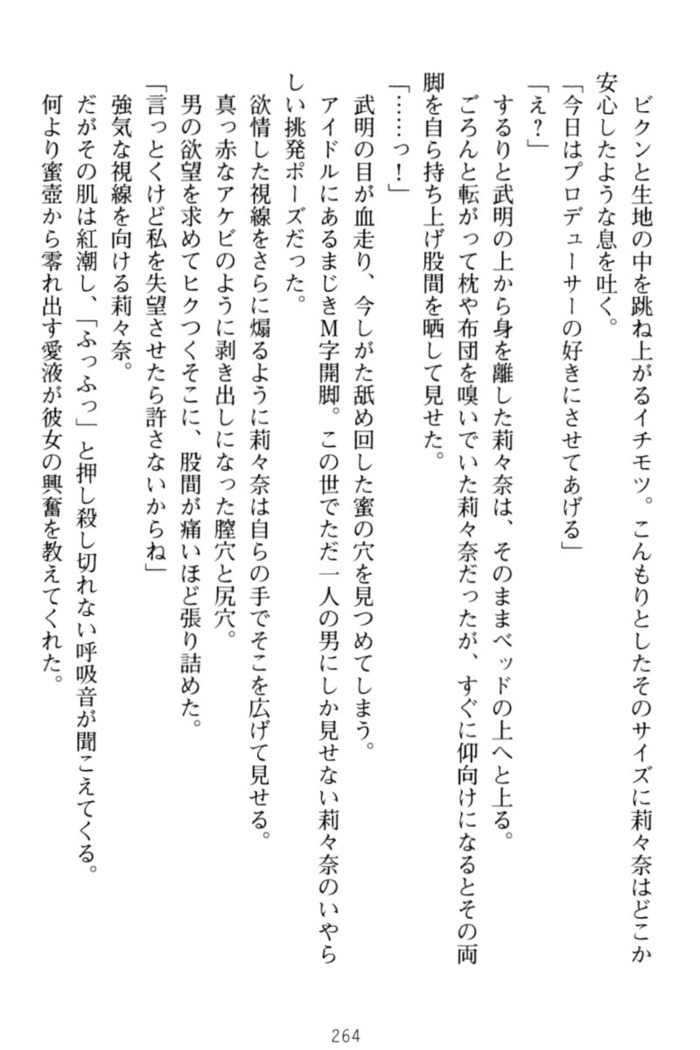 ビクンと生地の中を跳ね上がるイチモツ。こんもりとしたそのサイズに莉々奈はどこか
安心したような息を吐く。
「今日はプロデューサーの好きにさせてあげる」
「え？」
するりと武明の上から身を離した莉々奈は、そのままベッドの上へと上る。
ごろんと転がって枕や布団を嗅いでいた莉々奈だったが、すぐに仰向けになるとその両
脚を自ら持ち上げ股間を晒して見せた。
「……っ！」
武明の目が血走り、今しがた舐め回した蜜の穴を見つめてしまう。
アイドルにあるまじきＭ字開脚。この世でただ一人の男にしか見せない莉々奈のいやら
しい挑発ポーズだった。
欲情した視線をさらに煽るように莉々奈は自らの手でそこを広げて見せる。
真っ赤なアケビのように剥き出しになった膣穴と尻穴。
男の欲望を求めてヒクつくそこに、股間が痛いほど張り詰めた。
「言っとくけど私を失望させたら許さないからね」
強気な視線を向ける莉々奈。
だがその肌は紅潮し、「ふっふっ」と押し殺し切れない呼吸音が聞こえてくる。
何より蜜壺から零れ出す愛液が彼女の興奮を教えてくれた。
264